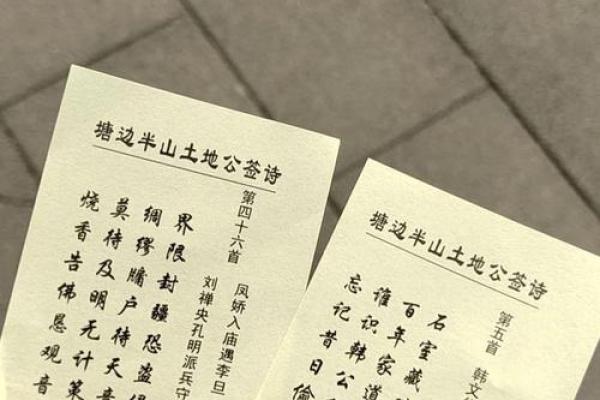 塘边半山土地公签诗
第四十六首
凤娇入庙遇李旦
刘禅央孔明派兵守
界限封疆恐盗
绸缪牖户待天
莫待及明无计策
烧香告佛恳观音
塘边半山土地公签诗
第五首
韩文
石室藏
百年家道
谁识韩公
忘记昔日偷